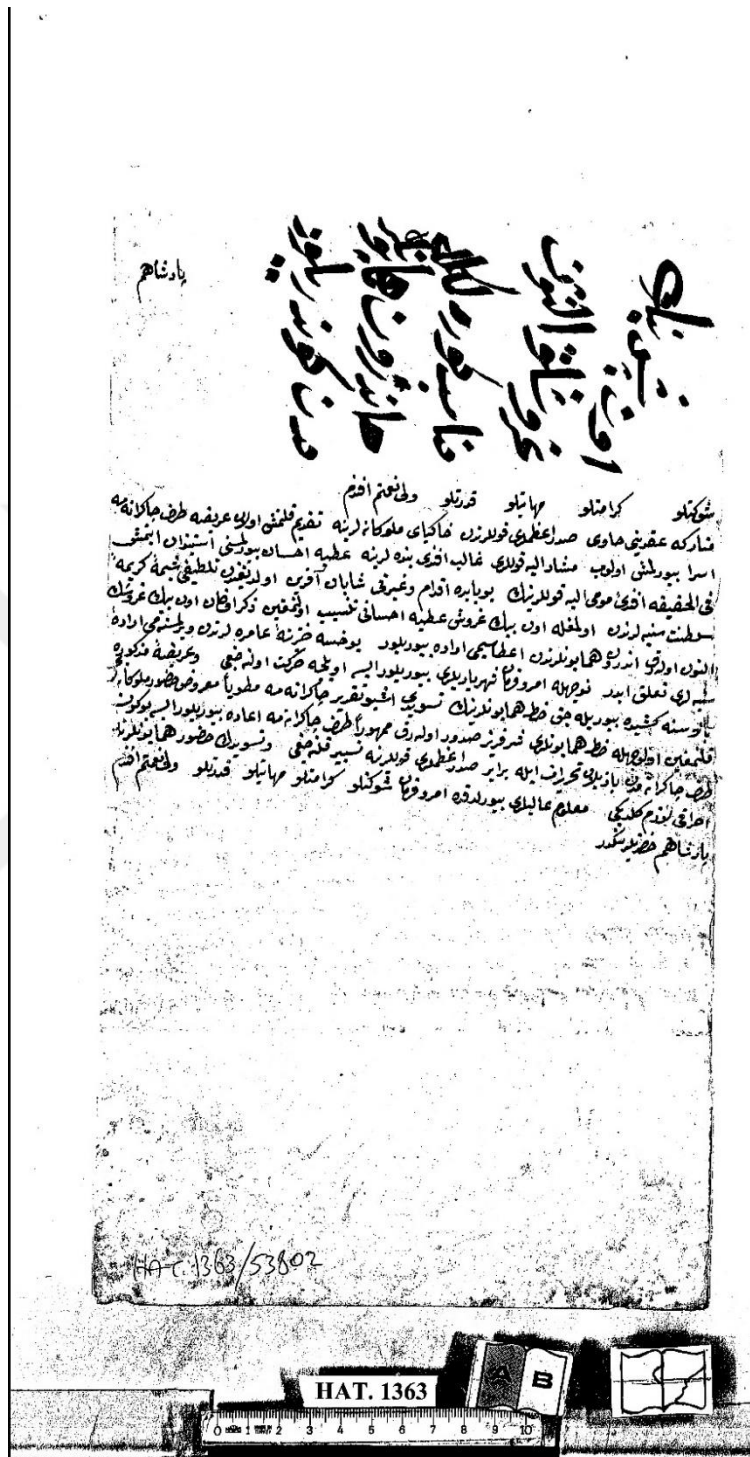 پادشاهم
اون بيك
غروشلق التون
هاندرون همايو
مدن كوندريلور
شوكتلو كرامتلو مهابتلو قدرتلو ولى نعمتم افندم
متاركه عقدينى حاوى صدراعظمى قوللرندن خاكپاى ملوكانه لرينه تقديم قلنمش اولان عريضه طرف چاكرانه مه
اسرا بيورلمش اولوب مشاراليه قوللرى غالب افندى بنده لرينه عطيه احسان بيورلمسنى استيذان ايتمش
فى الحقيقه افندئ مومى اليه قوللرينك بوبابده اقدام وغيرتى شايان آفرين اولديغندن تلطيفى شيمهٔ كريمهٔ
سلطنت سنيه لرندن اولمغله اون بيك غروش عطيه احسانى تنسيب اولنمغين ذكر اولنان اون بيك غروشك
التون اوله رق اندرون همايونلرندن اعطاسيمى اراده بيوريلور يوخسه خزينهٔ عامره لرندن ويرلمسنه مى ارادهٔ
عليه لرى تعلق ايدر نوجهله امر وفرمان شهرياريلرى بيوريلور ايسه اويله حركت اوله جغى وعريضهٔ مذكوره
بالاسنه كشيده بيوريله جق خط همايونلرينك تسويدى اشبو تقرير چاكرانه مه مطوياً معروض حضور ملوكانه لرى
قلنمغين اولوجهله خط همايونلرى شرفريز صدور اوله رق ممهوراً طرف چاكرانه مه اعاده بيوريلور ايسه بوكون
طرف چاكرانه مدن يازيلان تحريرات ايله برابر صدراعظمى قوللرينه تسيير قلنه جغى وتسويدك حضور همايونلرنده
احراقى لازم كلديكى معلوم عاليلرى بيورلدقده امر وفرمان شوكتلو كرامتلو مهابتلو قدرتلو ولى نعمتم افندم
پادشاهم حضرتلرينكدر
HAT. 1363/53802
A B
HAT. 1363
0 1 2 3 4 5 6 7 8 9 10